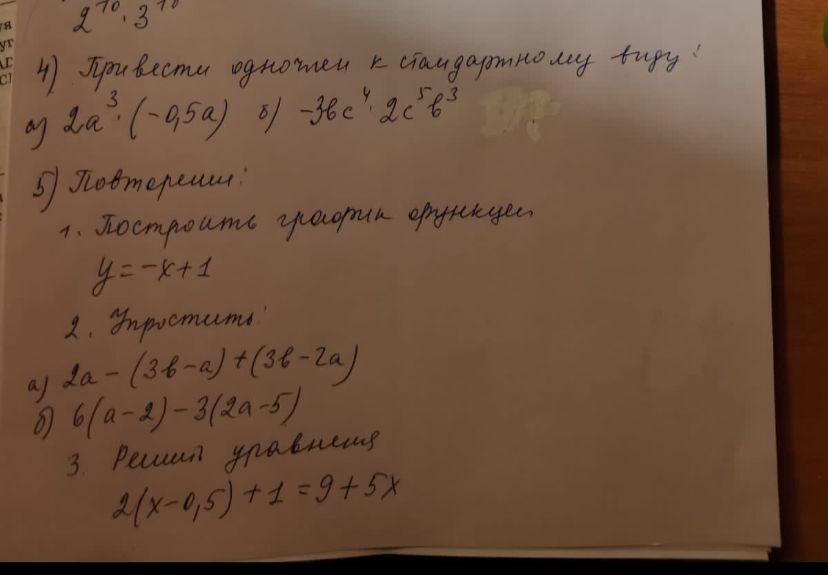 2¹⁰ · 3¹⁰
4) Привести одночлен к стандартному виду:
а) 2a³ · (-0,5a) б) -3bc⁴ · 2c⁵b³
5) Повторение:
1. Построить график функции
y = -x+1
2. Упростить:
а) 2a - (3b-a) + (3b-2a)
б) 6(a-2) - 3(2a-5)
3. Решить уравнения
2(x-0,5) + 1 = 9 + 5x